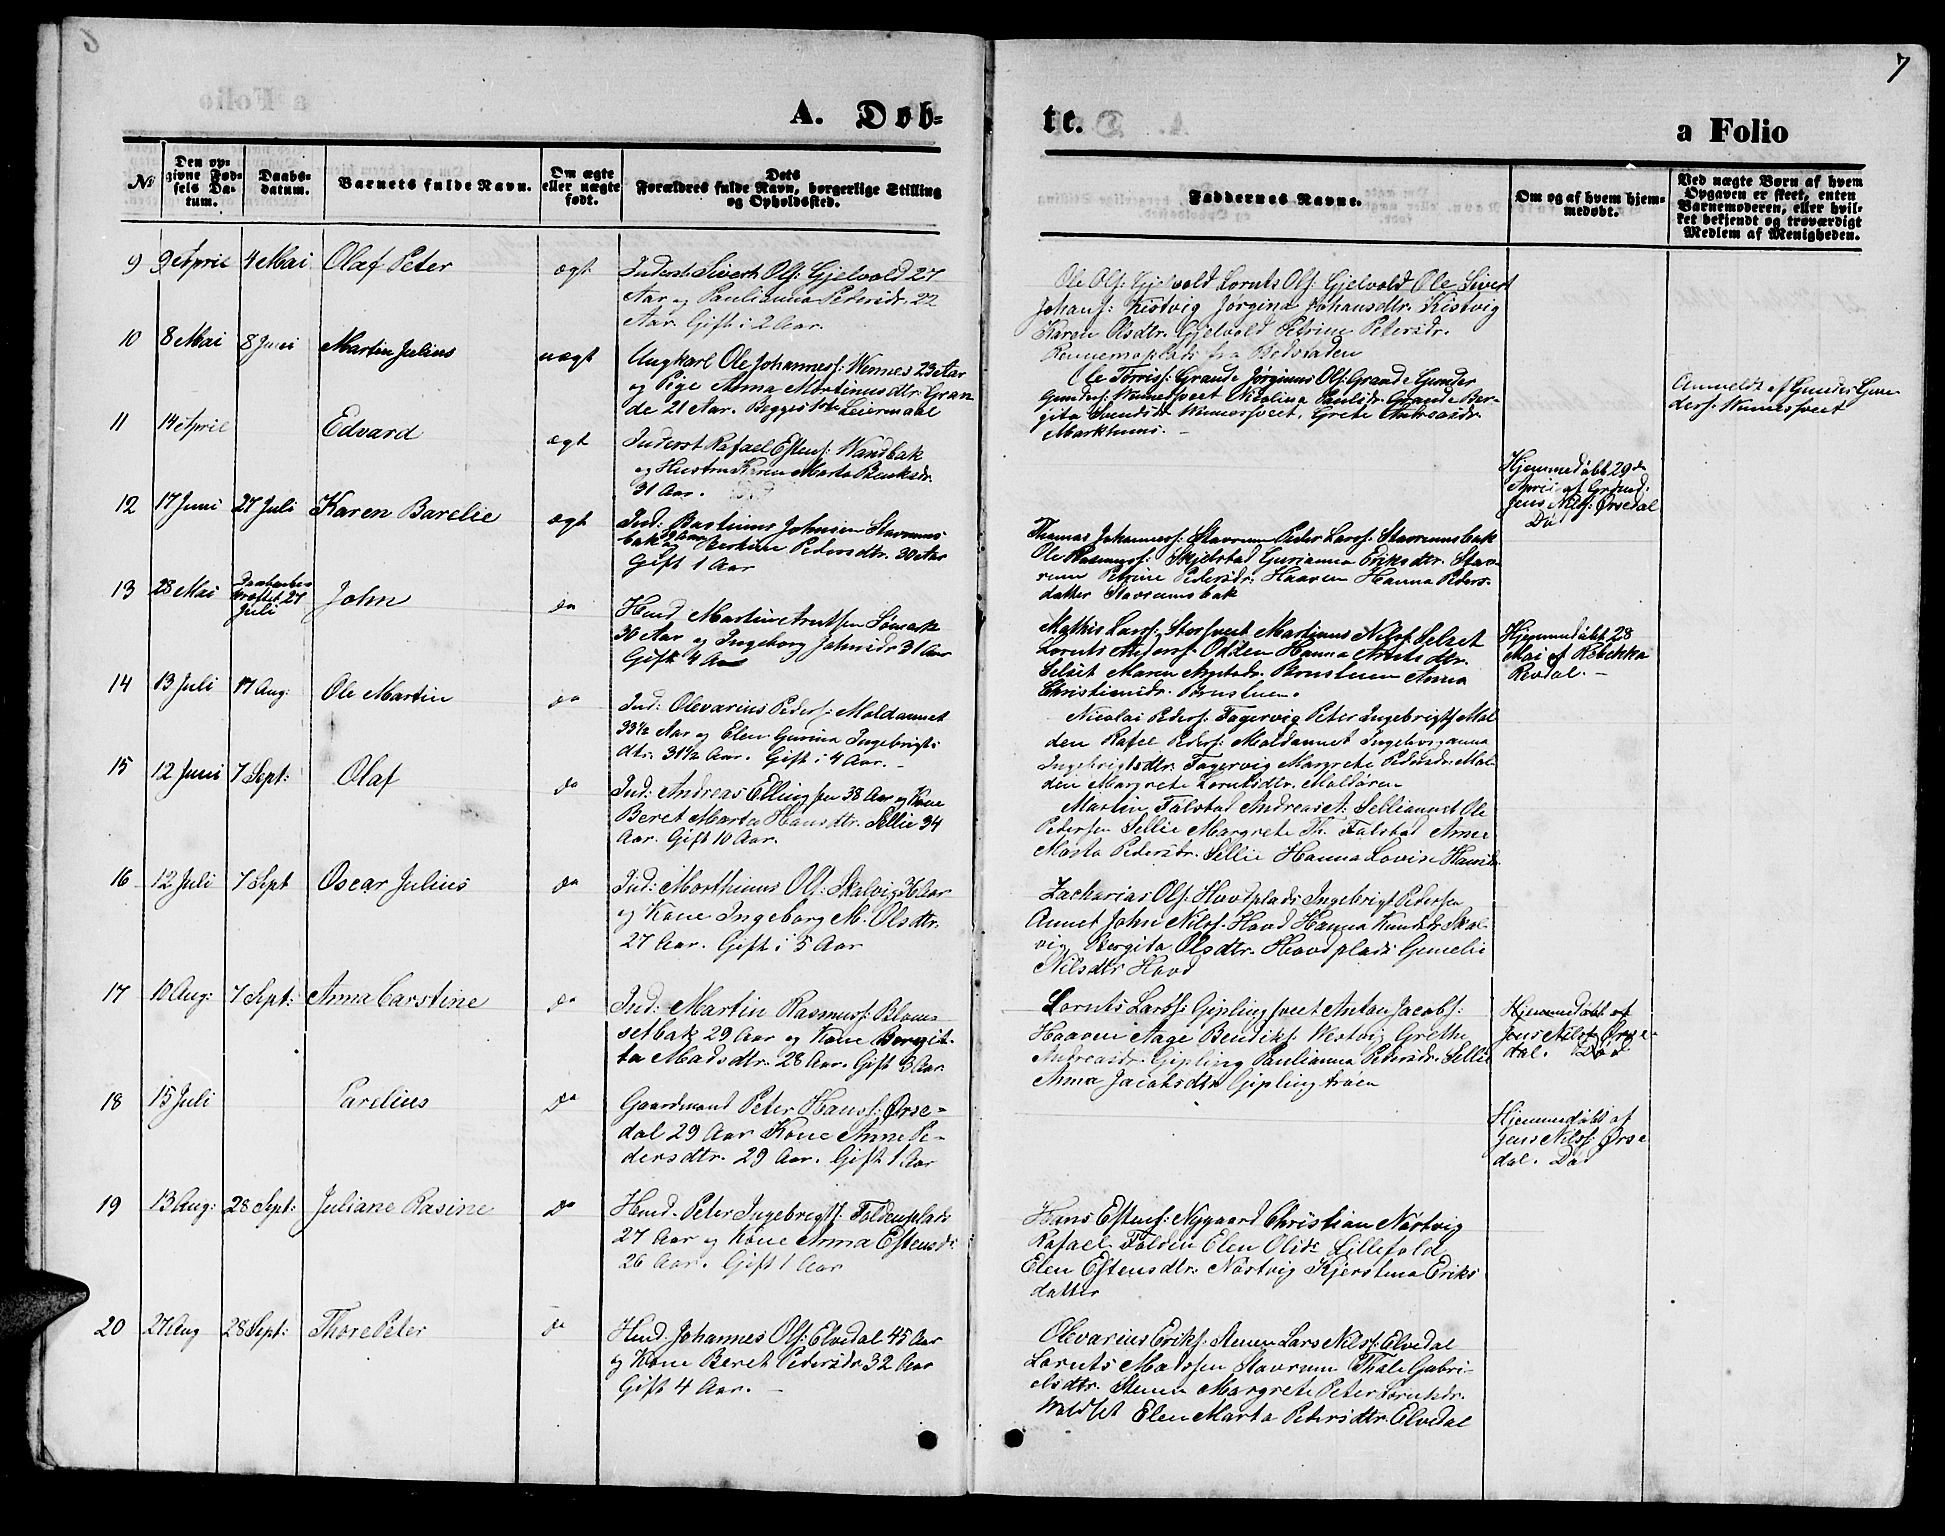 7
A. Döb-
te.
a Folio
No
Den op-
givne Fød-
sels Da-
tum.
Daabs-
datum.
Barnets fulde Navn.
Om ægte
eller uægte
født.
Dets
Forældres fulde Navn, borgerlige Stilling
og Opholdssted.
Faddernes Navne.
Om og af hvem hjem-
medøbt.
Ved uægte Børn af hvem
Opgaven er skeet, enten
Barnemoderen, eller hvil-
ket bekjendt og troværdigt
Medlem af Menigheden.
9 9 April 4 Mai Olaf Peter ægt
Inderst Sivert Ols: Gjelvold 27
Aar og Paulianna Pedersdr. 22
Aar. Gift i 2 Aar.
Ole Ols: Gjelvold Lornts Ols: Gjelvold Ole Sivert
Johans: Kistvig Jørgina Johansdtr. Kistvig
Karen Olsdtr. Gjelvold Petrine Petersdr.
Rennemsplads fra Bedstaden
10 8 Mai 8 Juni Martin Julius uægt
Ungkarl Ole Johanness: Winnes 23 Aar
og Pige Anna Martinusdtr. Gran
de 21 Aar. Begges 1ste Leiermaal
Ole Torriss: Grande Jørginus Ols: Grande Gunder
Gunders: Winnesveet Nicolina Paulsdr. Grande Ber-
gita Winnesveet. Grete Andreasdr.
Markhuus. -
Anmeldt af Gunder Gun
ders: Winnesveet
11 14 April Edvard ægt
Inderst Rafael Estens: Wandbak
og Hustru Karen Marta
31 Aar.
Hjemmedøbt 29de
April af Grdmd:
Jens Nils: Ørsedal
Død
12 17 Juni 27 Juli Karen Barelie ægt
Ind: Bastinus Johnsen Stavrums-
bak Aar Pedersdtr. 30 Aar
Gift 1 Aar
Thomas Johanness: Stavrum Peder Lars: Stavrumsbak
Ole Rasmuss: Skjelstad Gurianna Eriksdtr. Stav-
rum Petrine Pedersdr. Haaven Hanna Peders-
datter Stavrumsbak
13 28 Mai Daaben be
kræftet 27
Juli John do
Husd. Martin Arntsen Sømark
30 Aar og Ingeborg Johnsdr 31 Aar
Gift 4 Aar
Mathis Lars: Storsveet Martinus Nils: Selset
Lornts Odden Hanna Arntsdtr.
Selset Maren Anna
Christiansdr.
Hjemmedøbt 28
Mai af Rebekka
Revdal. -
14 13 Juli 17 Aug: Ole Martin do
Ind: Olevarius Peders: Moldannet
33½ Aar og Elen Gurina Ingebrigts
dtr. 31½ Aar. Gift i 4 Aar. -
Nicolai Peders: Fagervig Peter Ingebrigts: Mol
den Rafael Peders: Moldannet Ingeborganna
Ingebrigtsdtr. Fagervig Margrete Pedersdr. Mol
den Margrete Lorntsdtr. Moldøren
15 12 Juni 7 Sept: Olaf do
Ind: Andreas Ellingsen 38 Aar og Kone
Beret Marta Hansdtr. Sellie 34
Aar. Gift 10 Aar.
Martin Falstad Andreas A. Selliannet Ole
Pedersen Sellie Margrete Th. Falstad Anne
Marta Pedersdr. Sellie Hanna Lovise Hansdr
16 12 Juli 7 Sept Oscar Julius do
Ind: Morthinus Ols: Skalvig 36 Aar
og Kone Ingeborg M. Olsdtr.
27 Aar. Gift i 5 Aar
Zacharias Ols: Hovdplads Ingebrigt Pedersen
Annet John Nils: Hovd Hanna Knudsdr Skal-
vig Bergita Olsdtr. Hovdplads Gemelie
Nilsdtr Hovd
17 10 Aug: 7 Sept: Anna Carstine do
Ind: Martin Rasmuss: Blom-
setbak 29 Aar og Kone Bergit-
ta Madsdtr. 28 Aar. Gift 3 Aar.
Lornts Lars: Giplingsveet Anton Jacobs:
Haaven Aage Bendiks: Westvig Grethe
Andreasdr. Gipling Paulianna Pedersdr. Sellie
Anna Jacobsdtr. Giplingtrøen
Hjemmedøbt af
Jens Nils: Ørse-
dal. Død
18 15 Juli Parelius Do
Gaardmand Peter Hans: Ørse-
dal 29 Aar Kone Anne Pe-
dersdtr. 29 Aar. Gift 1 Aar
Hjemmedøbt af
Jens Nils: Ørse
dal. Død
19 13 Aug: 28 Sept: Juliane Rasine Do
Husd. Peter Ingebrigts: Foldenplads
27 Aar og Kone Anna Estensdr
26 Aar. Gift 1 Aar
Hans Estens: Nygaard Christian Nøstvig
Rafael Folden Elen Olsdr Lillefold
Elen Estensdtr. Nøstvig Kjerstina Eriks
datter
20 27 Aug 28 Sept: Thore Peter do
Husd. Johannes Ols: Elvedal 45 Aar
og Kone Beret Pedersdr. 32 Aar
Gift 4 Aar. -
Olevarius Eriks: Stenen Lars Nils: Elvedal
Lornts Madssen Stavrum Thale Gabri-
elsdtr. Stenen Margrete Peter Lorntsdr.
Elen Marta Petersdtr. Elvedal